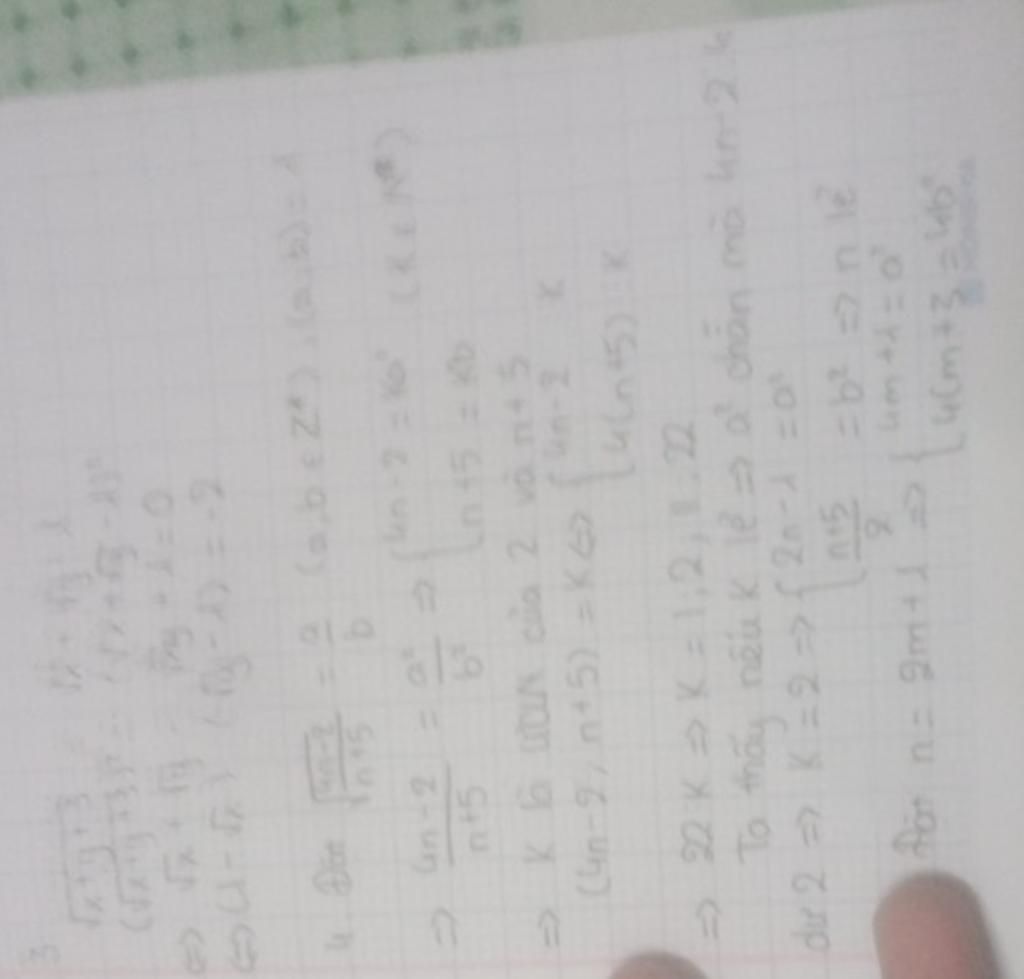 3
√(x+y+3) = √x + √y - 1
(√(x+y+3))² = (√x + √y - 1)²
⇔ √x + √y - √xy + 1 = 0
⇔ (1 - √x) (√y - 1) = -2
4. Đặt √((4n-2)/(n+5)) = a/b (a, b ∈ Z*), (a, b) = 1
⇒ (4n-2)/(n+5) = a²/b² ⇒ { 4n-2 = ka² (k ∈ N*)
{ n+5 = kb²
⇒ K là của 2 và n+5
(4n-2, n+5) = K ⇔ { 4n-2 ⋮ K
{ 4(n+5) ⋮ K
⇒ 22 ⋮ K ⇒ K = 1, 2, 11, 22
Ta thấy nếu K lẻ ⇒ a² chẵn mà 4n-2 :4
dư 2 ⇒ K = 2 ⇒ { 2n-1 = a²
{ (n+5)/2 = b² ⇒ n lẻ
Đặt n = 2m+1 ⇒ { 4m+1 = a²
{ 4(m+3) = 4b²